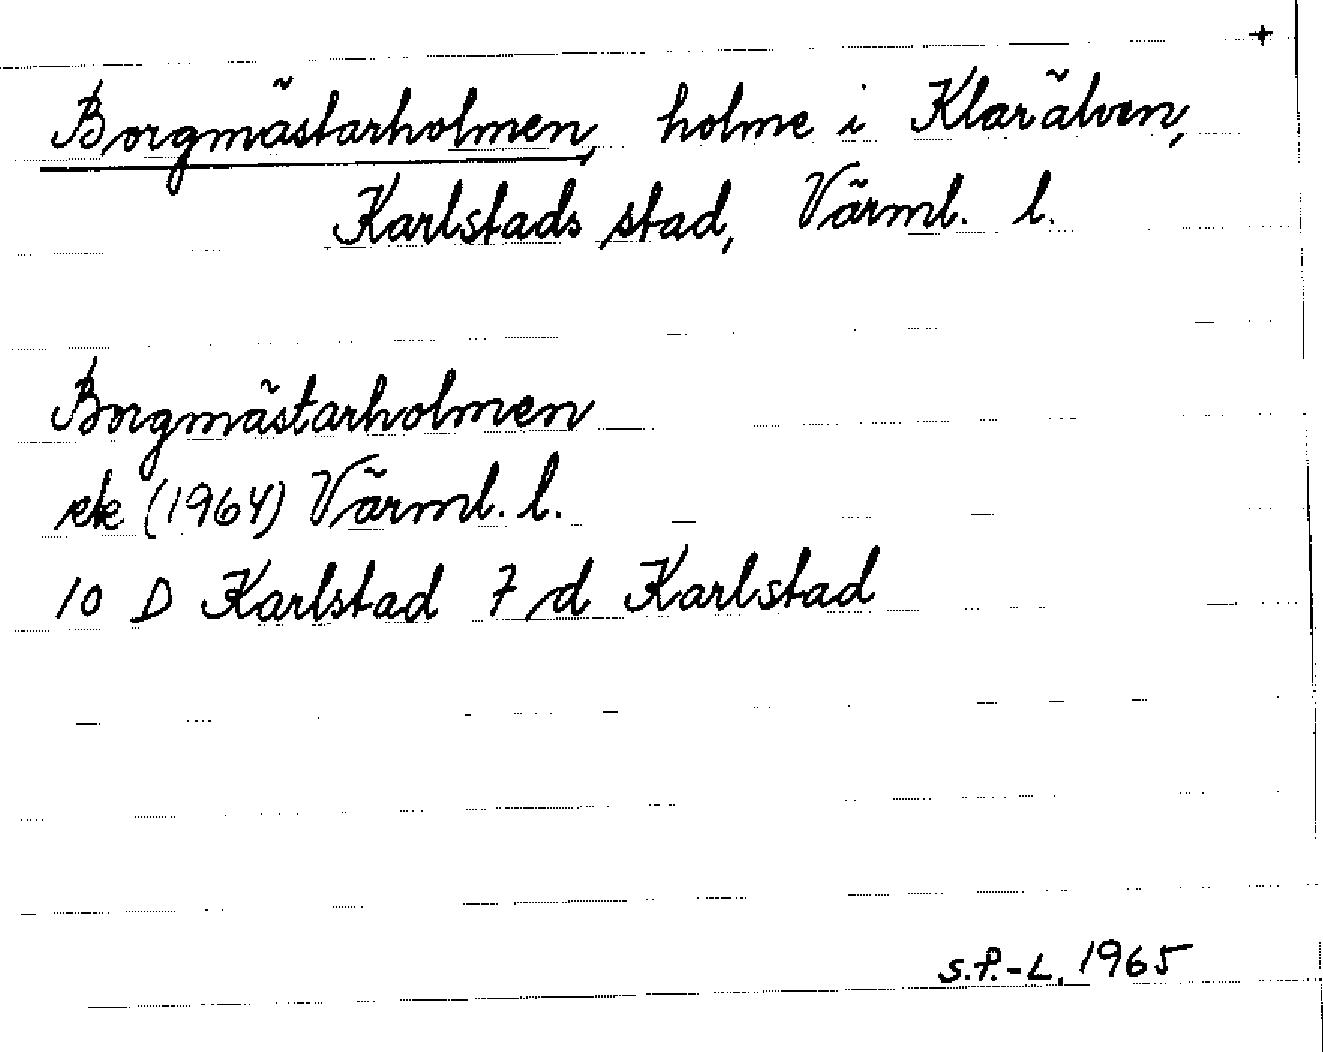 +
Borgmästarholmen, holme i Klarälven,
Karlstads stad, Värml. l.
Borgmästarholmen
ek (1964) Värml. l.
10 D Karlstad 7 d Karlstad
S.P.-L. 1965